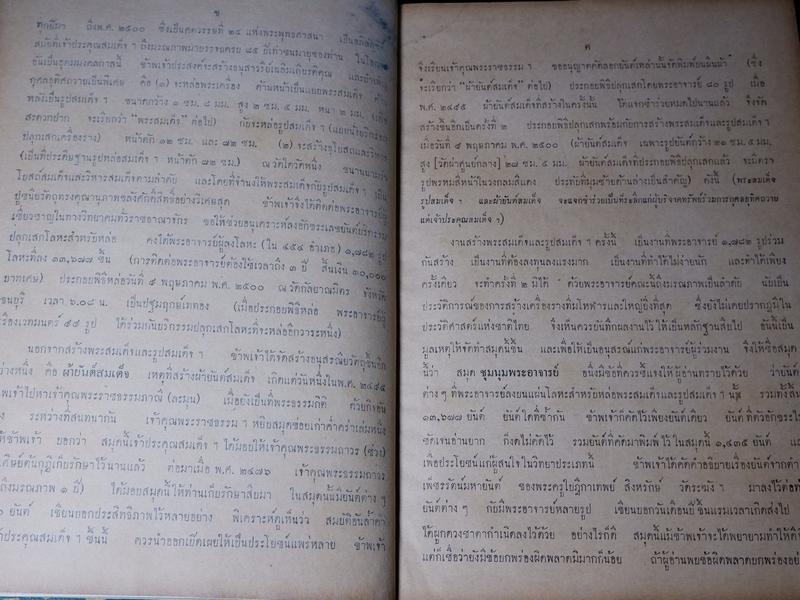 ข
ทุกปีมา ถึงพ.ศ. ๒๕๐๐ ซึ่งเป็นศตวรรษที่ ๒๕ แห่งพระพุทธศาสนา
สมัยที่เจ้าประคุณสมเด็จ ฯ ถึงมรณภาพมาบรรจบครบ ๘๕ ปีเท่าชนมายุของท่าน
อันเป็นอุดมมงคลกาลนี้ ข้าพเจ้าประสงค์จะสร้างอนุสาวรีย์เฉลิมเกียรติคุณ
กุศลอุทิศถวายเป็นพิเศษ คือ (๑) จะหล่อพระเครื่อง ด้านหน้าเป็นแบบพระสมเด็จ
หลังเป็นรูปสมเด็จ ฯ ขนาดกว้าง ๑ ซม. ๘ มม. สูง ๒ ซม. ๕ มม. หนา ๒ มม.
สะดวกปาก จะเรียกว่า "พระสมเด็จ" ต่อไป) กับจะหล่อรูปสมเด็จ ฯ
ปลุกเสกเครื่องราง) หน้าตัก ๑๒ ซม. และ ๗๒ ซม. (๒) จะสร้างอุโบสถและวิหาร
(เป็นที่ประดิษฐานรูปหล่อสมเด็จ ฯ หน้าตัก ๗๒ ซม.) ณ วัดใดวัดหนึ่ง
โบสถ์สมเด็จและวิหารสมเด็จตามลำดับ และโดยที่จำนงให้พระสมเด็จกับรูปสมเด็จ ฯ เป็น
ปูชนียวัตถุทรงคุณานุภาพขลังศักดิ์สิทธิ์อย่างวิเศษสุด ข้าพเจ้าจึงได้ติดต่อพระอาจารย์ผู้
เชี่ยวชาญในทางวิทยาคมทั่วราชอาณาจักร ขอให้ช่วยอนุเคราะห์ลงอักขระเลขยันต์บริกรรม
ปลุกเสกโลหะสำหรับหล่อ คงได้พระอาจารย์ผู้ลงโลหะ (ใน ๔๕๔ อำเภอ) ๑,๗๘๒ รูป
โลหะที่ลง ๑๓,๖๗๗ ชิ้น (การติดต่อพระอาจารย์ต้องใช้เวลาถึง ๓ ปี สิ้นเงิน ๑๐,๐๐๐
บาทเศษ) ประกอบพิธีหล่อวันที่ ๘ พฤษภาคม พ.ศ. ๒๕๐๐ ณ วัดกัลยาณมิตร จังหวัด
ธนบุรี เวลา ๖.๐๘ น. เป็นปฐมฤกษ์เททอง (เมื่อประกอบพิธีหล่อ พระอาจารย์ผู้
เรืองเวทมนตร์ ๕๕ รูป ได้ร่วมกันบริกรรมปลุกเสกโลหะที่หล่ออีกวาระหนึ่ง)
นอกจากสร้างพระสมเด็จและรูปสมเด็จ ฯ ข้าพเจ้าได้จัดสร้างอนุสรณียวัตถุขึ้นอีก
อย่างหนึ่ง คือ ผ้ายันต์สมเด็จ เหตุที่สร้างผ้ายันต์สมเด็จ เกิดแต่วันหนึ่งในพ.ศ. ๒๔๙๕
ข้าพเจ้าไปหาเจ้าคุณพระราชธรรมภาณี (ละมุน) เมื่อยังเป็นที่พระธรรมกิติ ด้วยกิจอัน
ระหว่างที่สนทนากัน เจ้าคุณพระราชธรรม ฯ หยิบสมุดข่อยเก่าคร่ำคร่าเล่มหนึ่ง
ให้ข้าพเจ้า บอกว่า สมุดนี้เจ้าประคุณสมเด็จ ฯ ได้มอบให้เจ้าคุณพระธรรมถาวร (ช่วง)
เป็นศิษย์ต้นกุฏิเก็บรักษาไว้นานแล้ว ต่อมาเมื่อ พ.ศ. ๒๔๗๖ เจ้าคุณพระธรรมถาวร
ถึงมรณภาพ ๑ ปี) ได้มอบสมุดนี้ให้ท่านเก็บรักษาสืบมา ในสมุดนั้นมียันต์ต่าง ๆ
ยันต์ เขียนบอกประสิทธิภาพไว้หลายอย่าง พิเคราะห์ดูเห็นว่า สมบัติอันล้ำค่า
เจ้าประคุณสมเด็จ ฯ ชิ้นนี้ ควรนำออกเปิดเผยให้เป็นประโยชน์แพร่หลาย ข้าพเจ้า
ค
จึงเรียนเจ้าคุณพระราชธรรม ฯ ขออนุญาตคัดลอกยันต์เหล่านั้นจัดพิมพ์ขึ้นผืนผ้า (ซึ่ง
จะเรียกว่า "ผ้ายันต์สมเด็จ" ต่อไป) ประกอบพิธีปลุกเสกโดยพระอาจารย์ ๘๐ รูป เมื่อ
พ.ศ. ๒๔๙๕ ผ้ายันต์สมเด็จที่สร้างในครั้งนั้น ได้แจกชำร่วยหมดไปนานแล้ว จึงจัด
สร้างขึ้นอีกเป็นครั้งที่ ๒ ประกอบพิธีปลุกเสกพร้อมกับการสร้างพระสมเด็จและรูปสมเด็จ ฯ
เมื่อวันที่ ๘ พฤษภาคม พ.ศ. ๒๕๐๐ (ผ้ายันต์สมเด็จ เฉพาะรูปยันต์กว้าง ๒๑ ซม. ๕ มม.
สูง [วัดผ่าศูนย์กลาง] ๒๘ ซม. ๕ มม. ผ้ายันต์สมเด็จที่ประกอบพิธีปลุกเสกแล้ว จะมีตรา
รูปพรหมสี่หน้าในวงกลมสีแดง ประทับที่มุมซ้ายด้านล่างเป็นสำคัญ) ดังนี้ (พระสมเด็จ
รูปสมเด็จ ฯ และผ้ายันต์สมเด็จ จะแจกชำร่วยเป็นที่ระลึกแก่ผู้บริจาคทรัพย์ร่วมการกุศลอุทิศถวาย
แด่เจ้าประคุณสมเด็จ ฯ)
งานสร้างพระสมเด็จและรูปสมเด็จ ฯ ครั้งนี้ เป็นงานที่พระอาจารย์ ๑,๗๘๒ รูปร่วม
กันสร้าง เป็นงานที่ต้องลงทุนลงแรงมาก เป็นงานที่ทำได้ไม่ง่ายนัก และทำได้เพียง
ครั้งเดียว จะทำครั้งที่ ๒ มิได้ ด้วยพระอาจารย์คณะนี้ถึงมรณภาพเป็นลำดับ นับเป็น
ประวัติการณ์ของการสร้างเครื่องรางที่มโหฬารและใหญ่ยิ่งที่สุด ซึ่งยังไม่เคยปรากฏมีใน
ประวัติศาสตร์แห่งชาติไทย จึงเห็นควรบันทึกผลงานไว้ให้เป็นหลักฐานสืบไป อันนี้เป็น
มูลเหตุให้จัดทำสมุดนี้ขึ้น และเพื่อให้เป็นอนุสรณ์แก่พระอาจารย์ผู้ร่วมงาน จึงให้ชื่อสมุด
นี้ว่า สมุด ชุมนุมพระอาจารย์ อนึ่งมีข้อที่ควรชี้แจงให้ผู้อ่านทราบไว้ด้วย ว่ายันต์
ต่าง ๆ ที่พระอาจารย์ลงบนแผ่นโลหะสำหรับหล่อพระสมเด็จและรูปสมเด็จ ฯ นั้น รวมทั้งสิ้น
๑๓,๖๗๗ ยันต์ ยันต์ใดที่ซ้ำกัน ข้าพเจ้าก็คัดไว้เพียงยันต์เดียว ยันต์ที่ตัวอักขระไม่
ชัดเจนอ่านยาก ก็งดไม่คัดไว้ รวมยันต์ที่คัดมาพิมพ์ไว้ในสมุดนี้ ๑,๔๓๕ ยันต์ และ
เพื่อประโยชน์แก่ผู้สนใจในวิทยาประเภทนี้ ข้าพเจ้าได้คัดคำอธิบายเรื่องยันต์จากตำรา
เพ็ชรรัตน์มหายันต์ ของพระครูใบฎีกาเทพย์ สิงหรักษ์ วัดระฆัง ฯ มาลงไว้ต่อท้าย
ยันต์ต่าง ๆ กับมีพระอาจารย์หลายรูป เขียนบอกวันเดือนปีขึ้นแรมเวลาเกิดส่งไป
ได้ผูกดวงชาตากำเนิดลงไว้ด้วย อย่างไรก็ดี สมุดนี้แม้ข้าพเจ้าจะได้พยายามทำให้ดี
แต่ก็เชื่อว่ายังมีข้อบกพร่องผิดพลาดมีมากก็น้อย ถ้าผู้อ่านพบข้อผิดพลาดบกพร่องอย่าง